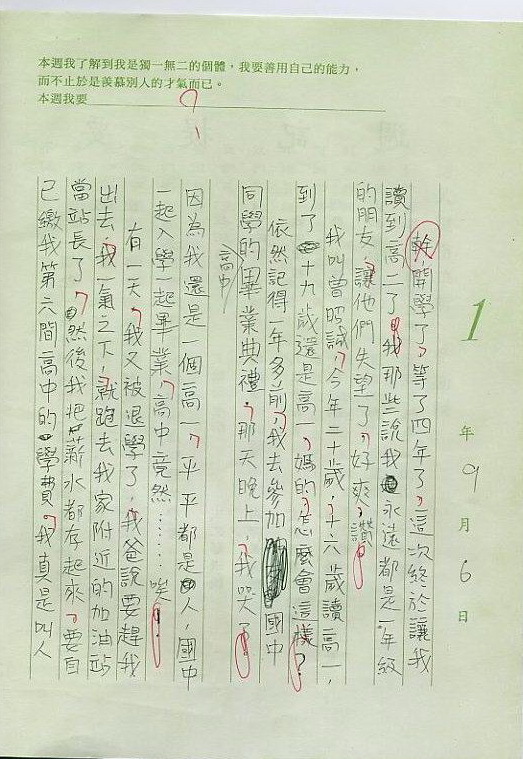 本週我了解到我是獨一無二的個體，我要善用自己的能力，
而不止於是羨慕別人的才氣而已。
本週我要
1年9月6日
幹，開學了，等了四年了，這次終於讓我
讀到高二了，我那些說我永遠都是一年級
的朋友，讓他們失望了，好爽，讚！
我叫曾昭誠，今年二十歲，十六歲讀高一，
到了十九歲還是高一，媽的，怎麼會這樣？
依然記得年多前，我去參加國中
同學的高中畢業典禮，那天晚上，我哭了，
因為我還是一個高一，平平都是人，國中
一起入學一起畢業，高中竟然……唉！
有一天，我又被退學了，我爸說要趕我
出去，我一氣之下，就跑去我家附近的加油站
當站長了，然後我把薪水都存起來，要自
己繳我第六間高中的學費，我真是叫人